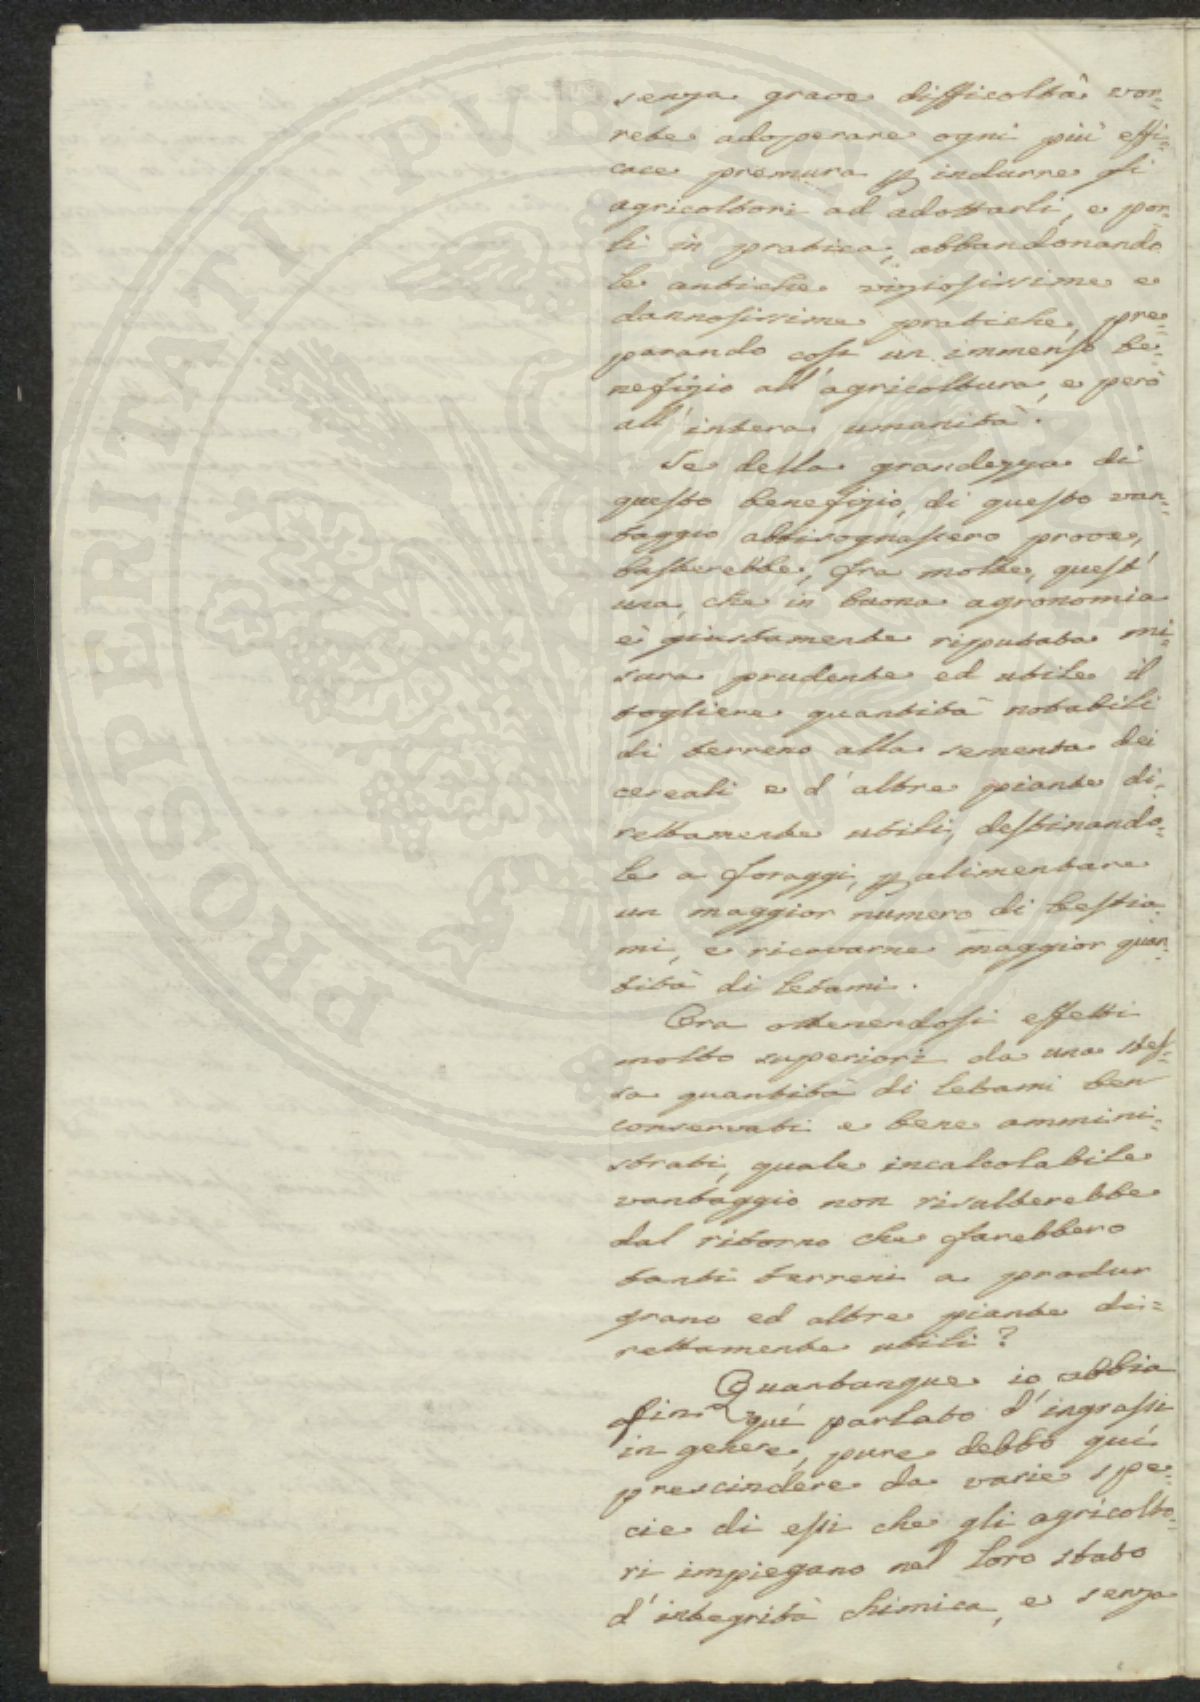 senza grave difficoltà vor-
rebe adoperare ogni più effi-
cace premura p indurre gli
agricoltori ad adottarli, e por-
li in pratica, abbandonando
le antiche viziosissime e
dannosissime pratiche, pre-
parando così un immenso be-
nefizio all'agricoltura, e però
all'intera umanità.
Se della grandezza di
questo benefizio, di questo van-
taggio abbisognassero prove,
basterebbe, fra molte, quest'
una, che in buona agronomia
è giustamente riputata mi-
sura prudente ed utile il
togliere quantità notabili
di terreno alla sementa dei
cereali e d'altre piante di-
rettamente utili, destinando-
le a foraggi, p alimentare
un maggior numero di bestia-
mi, e ricavarne maggior quan-
tità di letami.
Ora ottenendosi effetti
molto superiori da una stes-
sa quantità di letami ben
conservati e bene ammini-
strati, quale incalcolabile
vantaggio non risulterebbe
dal ritorno che farebbero
tanti terreni a produr
grano ed altre piante di-
rettamente utili?
Quantunque io abbia
fin quì parlato d'ingrassi
in genere, pure debbo quì
prescindere da varie spe-
cie di essi che gli agricolto-
ri impiegano nel loro stato
d'integrità chimica, e senza
PROSPERITATI PUBLICAE AUGENDAE